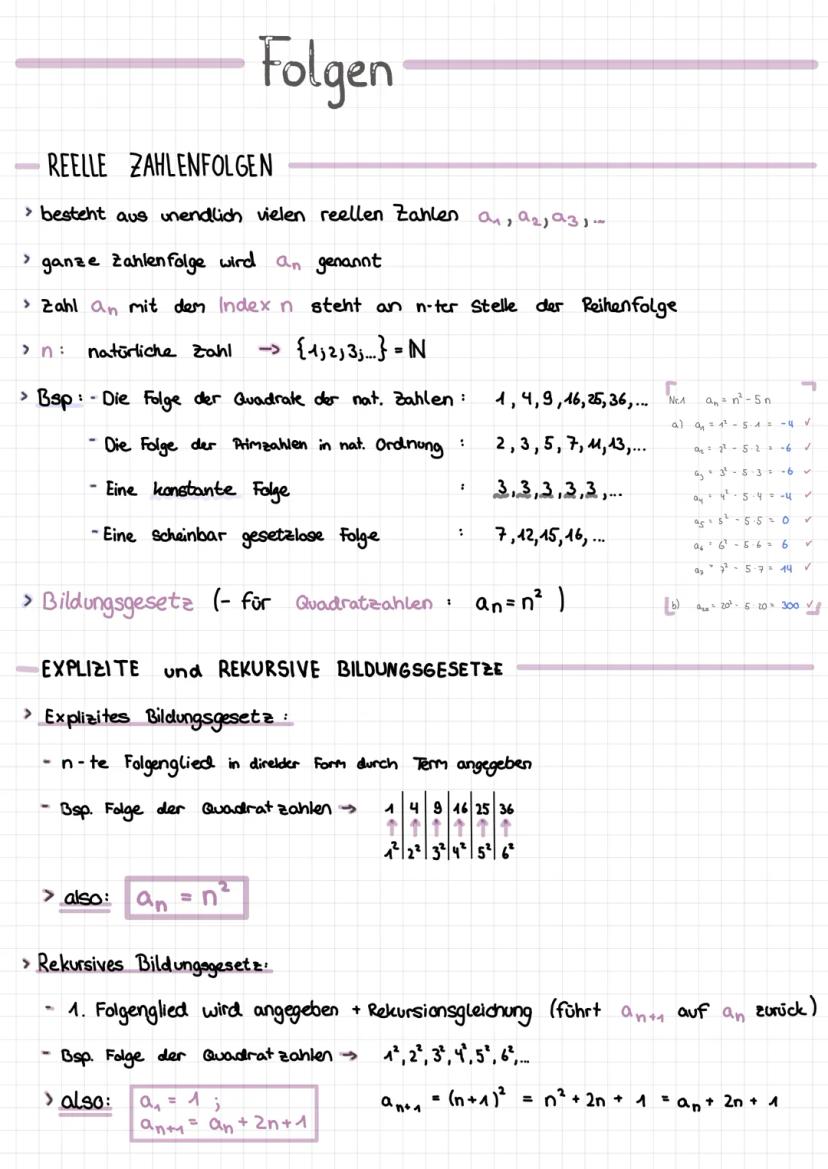 Folgen
REELLE ZAHLENFOLGEN
> besteht aus unendlich vielen reellen Zahlen a₁, a₂, a₃, ...
> ganze Zahlenfolge wird aₙ genannt
> Zahl aₙ mit dem Index n steht an n-ter Stelle der Reihenfolge
> n: natürliche Zahl → {1;2;3;...} = ℕ
> Bsp: - Die Folge der Quadrate der nat. Zahlen : 1, 4, 9, 16, 25, 36, ...
- Die Folge der Primzahlen in nat. Ordnung : 2, 3, 5, 7, 11, 13, ...
- Eine konstante Folge : 3, 3, 3, 3, 3, ...
- Eine scheinbar gesetzlose Folge : 7, 12, 15, 16, ...
Nr.1 aₙ = n² - 5n
a) a₁ = 1² - 5·1 = -4 ✓
a₂ = 2² - 5·2 = -6 ✓
a₃ = 3² - 5·3 = -6 ✓
a₄ = 4² - 5·4 = -4 ✓
a₅ = 5² - 5·5 = 0 ✓
a₆ = 6² - 5·6 = 6 ✓
a₇ = 7² - 5·7 = 14 ✓
b) a₂₀ = 20² - 5·20 = 300 ✓
> Bildungsgesetz (- für Quadratzahlen : aₙ = n² )
EXPLIZITE und REKURSIVE BILDUNGSGESETZE
> Explizites Bildungsgesetz :
- n-te Folgenglied in direkter Form durch Term angegeben
- Bsp. Folge der Quadratzahlen → 1 | 4 | 9 | 16 | 25 | 36
↑ ↑ ↑ ↑ ↑ ↑
1² | 2² | 3² | 4² | 5² | 6²
> also: aₙ = n²
> Rekursives Bildungsgesetz:
- 1. Folgenglied wird angegeben + Rekursionsgleichung (führt aₙ₊₁ auf aₙ zurück)
- Bsp. Folge der Quadratzahlen → 1², 2², 3², 4², 5², 6², ...
> also: a₁ = 1 ;
aₙ₊₁ = aₙ + 2n + 1
aₙ₊₁ = (n+1)² = n² + 2n + 1 = aₙ + 2n + 1